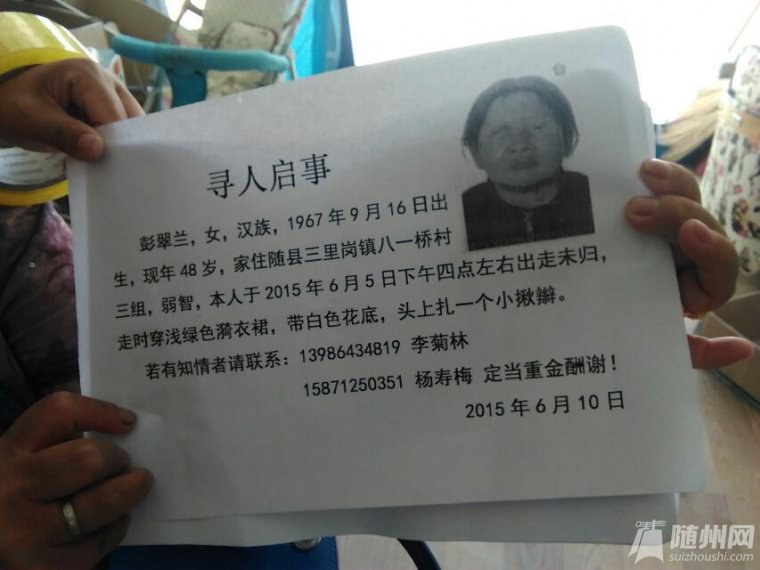 寻人启事
彭翠兰，女，汉族，1967年9月16日出
生，现年48岁，家住随县三里岗镇八一桥村
三组，弱智，本人于2015年6月5日下午四点左右出走未归，
走时穿浅绿色漪衣裙，带白色花底，头上扎一个小揪辫。
若有知情者请联系：13986434819 李菊林
15871250351 杨寿梅 定当重金酬谢！
2015年6月10日
随州网
suizhoushi.com